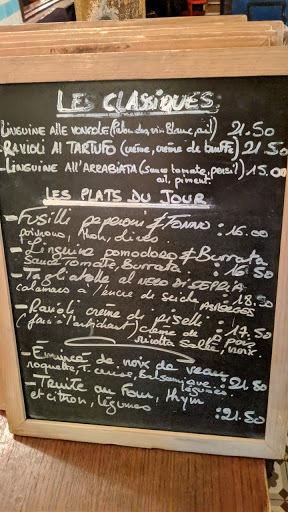 LES CLASSIQUES
LINGUINE ALLE VONGOLE (Palourdes, vin blanc, ail) 21.50
RAVIOLI AI TARTUFO (crème, crème de truffe) 21.50
-LINGUINE ALL'ARRABIATA (sauce tomate, persil) 15.00
ail, piment.
LES PLATS DU JOUR
-Fusilli peperoni & TONNO
poivrons, thon, olives. : 16.00
- Linguine pomodoro & Burrata
Sauce Tomate, Burrata. : 16.50
- Tagliatelle al NERO DI SEPPIA
calamars à l'encre de seiche ASPERGES : 18.50
- Ravioli creme di piselli : 17.50
(fait à l'artichaut) creme de P. pois
ricotta salée, noix
- Émincé de noix de veau,
roquette, T. cerise, Balsamique : 21.80
légumes.
- Truite au Four, thym
et citron, légumes :21.50